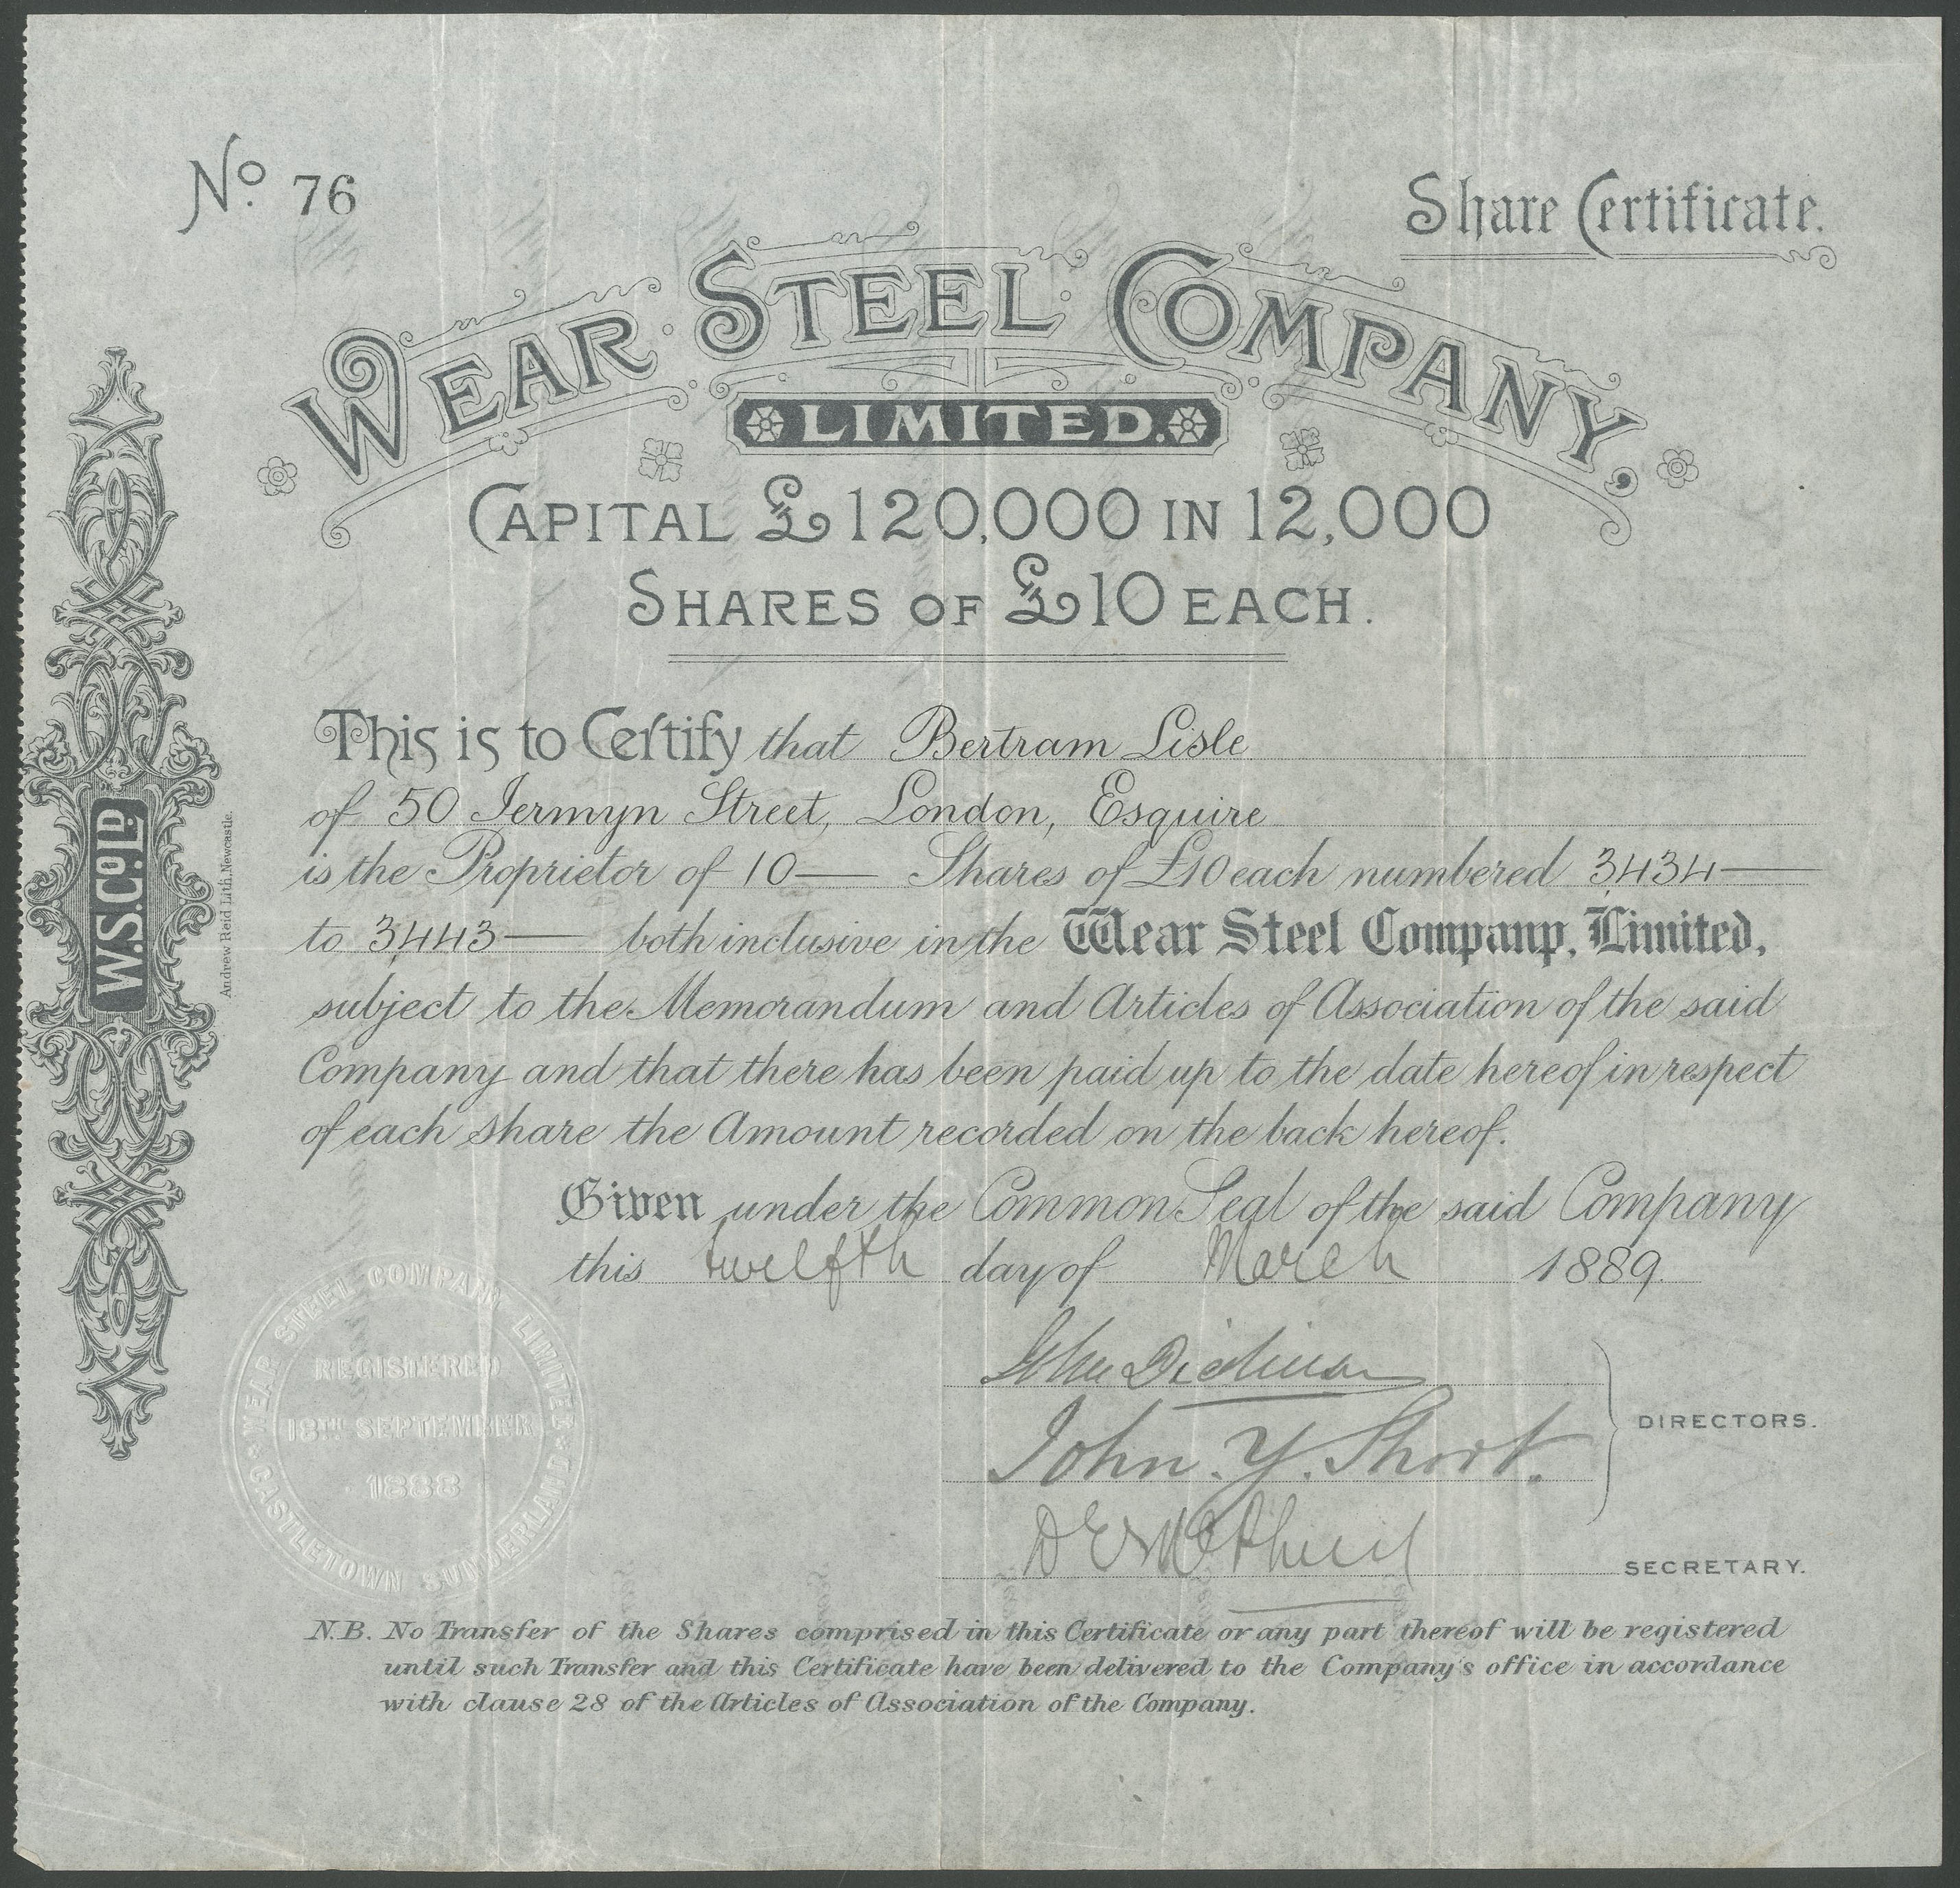 No. 76
Share Certificate.
WEAR STEEL COMPANY,
LIMITED.
CAPITAL £120,000 IN 12,000
SHARES OF £10 EACH.
This is to Certify that Bertram Lisle
of 50 Jermyn Street, London, Esquire
is the Proprietor of 10 — Shares of £10 each numbered 3434 —
to 3443 — both inclusive in the Wear Steel Company, Limited,
subject to the Memorandum and Articles of Association of the said
Company and that there has been paid up to the date hereof in respect
of each share the Amount recorded on the back hereof.
Given under the Common Seal of the said Company
this twelfth day of March 1889.
John Dickinson
John. Y. Short.
DIRECTORS.
SECRETARY.
N.B. No Transfer of the Shares comprised in this Certificate or any part thereof will be registered
until such Transfer and this Certificate have been delivered to the Company's office in accordance
with clause 28 of the Articles of Association of the Company.
W.S.Co. Ld.
Andrew Reid Lith. Newcastle.
WEAR STEEL COMPANY LIMITED
CASTLETOWN SUNDERLAND
REGISTERED
18TH SEPTEMBER
1888